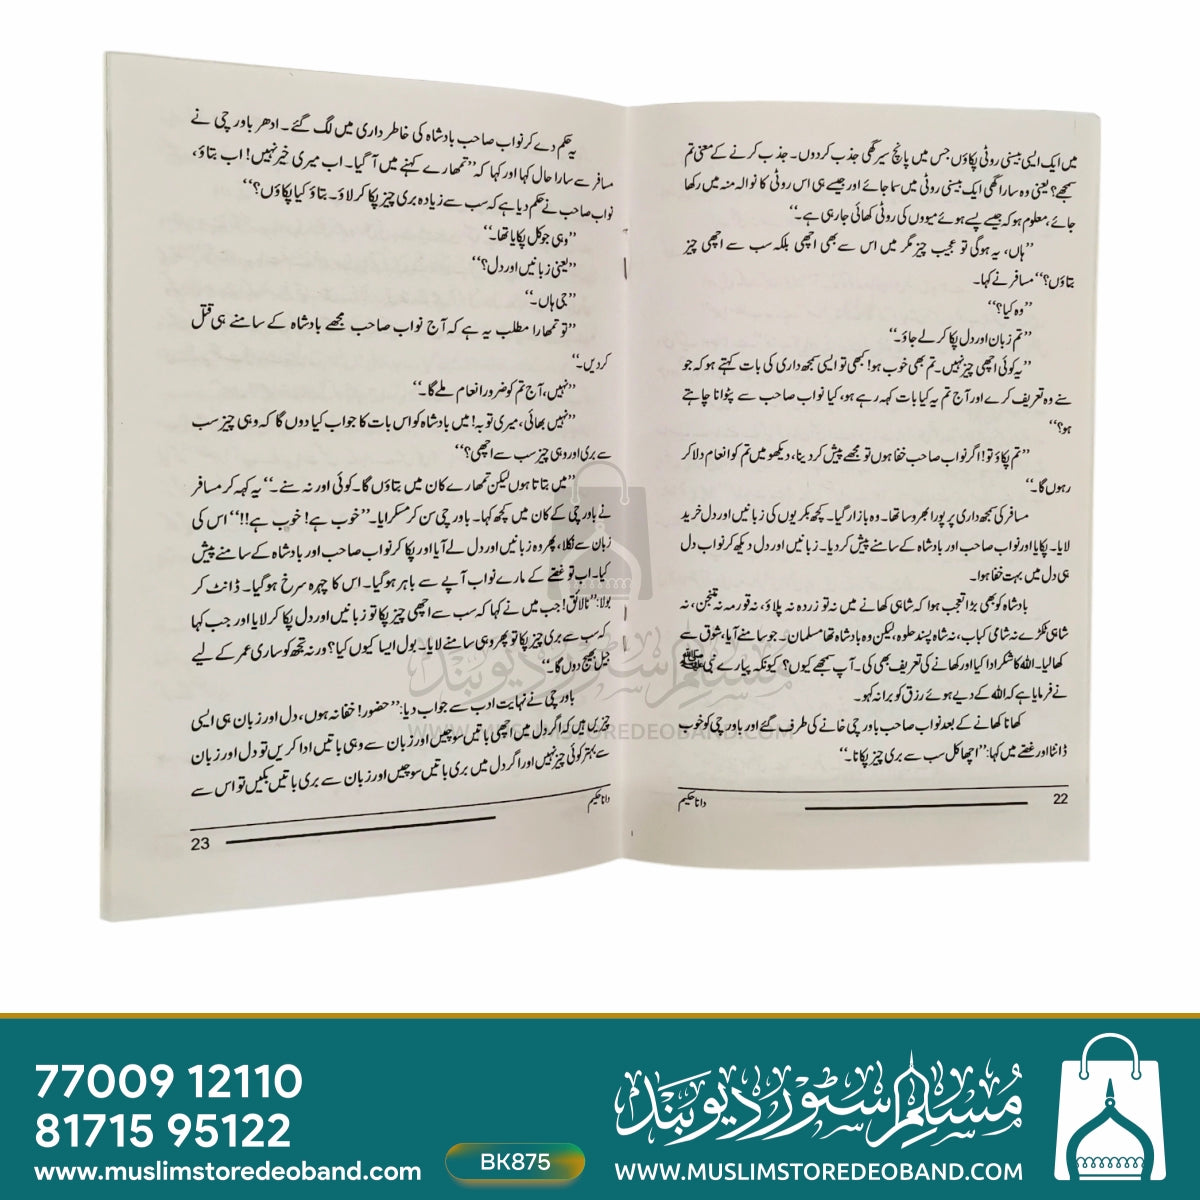 میں ایک ایسی بیسنی روٹی پکاؤں جس میں پانچ سیر گھی جذب کردوں۔ جذب کرنے کے معنی تم
سمجھے؟ یعنی وہ سارا گھی ایک بیسنی روٹی میں سما جائے اور جیسے ہی اس روٹی کا نوالہ منہ میں رکھا
جائے، معلوم ہو کہ جیسے پسے ہوئے میووں کی روٹی کھائی جارہی ہے۔‘‘
’’ہاں، یہ ہوگی تو عجیب چیز مگر میں اس سے بھی اچھی بلکہ سب سے اچھی چیز
بتاؤں؟‘‘ مسافر نے کہا۔
’’وہ کیا؟‘‘
’’تم زبان اور دل پکا کر لے جاؤ۔‘‘
’’یہ کوئی اچھی چیز نہیں۔ تم بھی خوب ہو! کبھی تو ایسی سمجھ داری کی بات کہتے ہو کہ جو
سنے وہ تعریف کرے اور آج تم یہ کیا بات کہہ رہے ہو، کیا نواب صاحب سے پٹوانا چاہتے
ہو؟‘‘
’’تم پکاؤ تو! اگر نواب صاحب خفا ہوں تو مجھے پیش کر دینا، دیکھو میں تم کو انعام دلا کر
رہوں گا۔‘‘
مسافر کی سمجھ داری پر پورا بھروسا تھا۔ وہ بازار گیا۔ کچھ بکریوں کی زبانیں اور دل خرید
لایا۔ پکایا اور نواب صاحب اور بادشاہ کے سامنے پیش کر دیا۔ زبانیں اور دل دیکھ کر نواب دل
ہی دل میں بہت خفا ہوا۔
بادشاہ کو بھی بڑا تعجب ہوا کہ شاہی کھانے میں نہ تو زردہ نہ پلاؤ، نہ قورمہ نہ متنجن، نہ
شاہی ٹکڑے نہ شامی کباب، نہ شاہ پسند حلوہ، لیکن وہ بادشاہ تھا مسلمان۔ جو سامنے آیا، شوق سے
کھالیا۔ اللہ کا شکر ادا کیا اور کھانے کی تعریف بھی کی۔ آپ سمجھے کیوں؟ کیونکہ پیارے نبی ﷺ
نے فرمایا ہے کہ اللہ کے دیے ہوئے رزق کو برا نہ کہو۔
کھانا کھانے کے بعد نواب صاحب باورچی خانے کی طرف گئے اور باورچی کو خوب
ڈانٹا اور غصے میں کہا: ’’اچھا کل سب سے بری چیز پکانا۔‘‘
دانا حکیم
22
یہ حکم دے کر نواب صاحب بادشاہ کی خاطر داری میں لگ گئے۔ ادھر باورچی نے
مسافر سے سارا حال کہا اور کہا کہ ’’تمھارے کہنے میں آ گیا۔ اب میری خیر نہیں! اب بتاؤ،
نواب صاحب نے حکم دیا ہے کہ سب سے زیادہ بری چیز پکا کر لاؤ۔ بتاؤ کیا پکاؤں؟‘‘
’’وہی جو کل پکایا تھا۔‘‘
’’یعنی زبانیں اور دل؟‘‘
’’جی ہاں۔‘‘
’’تو تمھارا مطلب یہ ہے کہ آج نواب صاحب مجھے بادشاہ کے سامنے ہی قتل
کر دیں۔‘‘
’’نہیں، آج تم کو ضرور انعام ملے گا۔‘‘
’’نہیں بھائی، میری توبہ! میں بادشاہ کو اس بات کا جواب کیا دوں گا کہ وہی چیز سب
سے بری اور وہی چیز سب سے اچھی؟‘‘
’’میں بتاتا ہوں لیکن تمھارے کان میں بتاؤں گا۔ کوئی اور نہ سنے۔‘‘ یہ کہہ کر مسافر
نے باورچی کے کان میں کچھ کہا۔ باورچی سن کر مسکرایا۔ ’’خوب ہے! خوب ہے!!‘‘ اس کی
زبان سے نکلا، پھر وہ زبانیں اور دل لے آیا اور پکا کر نواب صاحب اور بادشاہ کے سامنے پیش
کیا۔ اب تو غصے کے مارے نواب آپے سے باہر ہو گیا۔ اس کا چہرہ سرخ ہو گیا۔ ڈانٹ کر
بولا: ’’نالائق! جب میں نے کہا کہ سب سے اچھی چیز پکا تو زبانیں اور دل پکا کر لایا اور جب کہا
کہ سب سے بری چیز پکا تو پھر وہی سامنے لایا۔ بول ایسا کیوں کیا؟ ورنہ تجھ کو ساری عمر کے لیے
جیل بھیج دوں گا۔‘‘
باورچی نے نہایت ادب سے جواب دیا: ’’حضور! خفا نہ ہوں، دل اور زبان ہی ایسی
چیزیں ہیں کہ اگر دل میں اچھی باتیں سوچیں اور زبان سے وہی باتیں ادا کریں تو دل اور زبان
سے بہتر کوئی چیز نہیں اور اگر دل میں بری باتیں سوچیں اور زبان سے بری باتیں بکیں تو اس سے
دانا حکیم
23
مسلم سٹور دیوبند
WWW.MUSLIMSTOREDEOBAND.COM
77009 12110
81715 95122
www.muslimstoredeoband.com
BK875
مسلم سٹور دیوبند
WWW.MUSLIMSTOREDEOBAND.COM